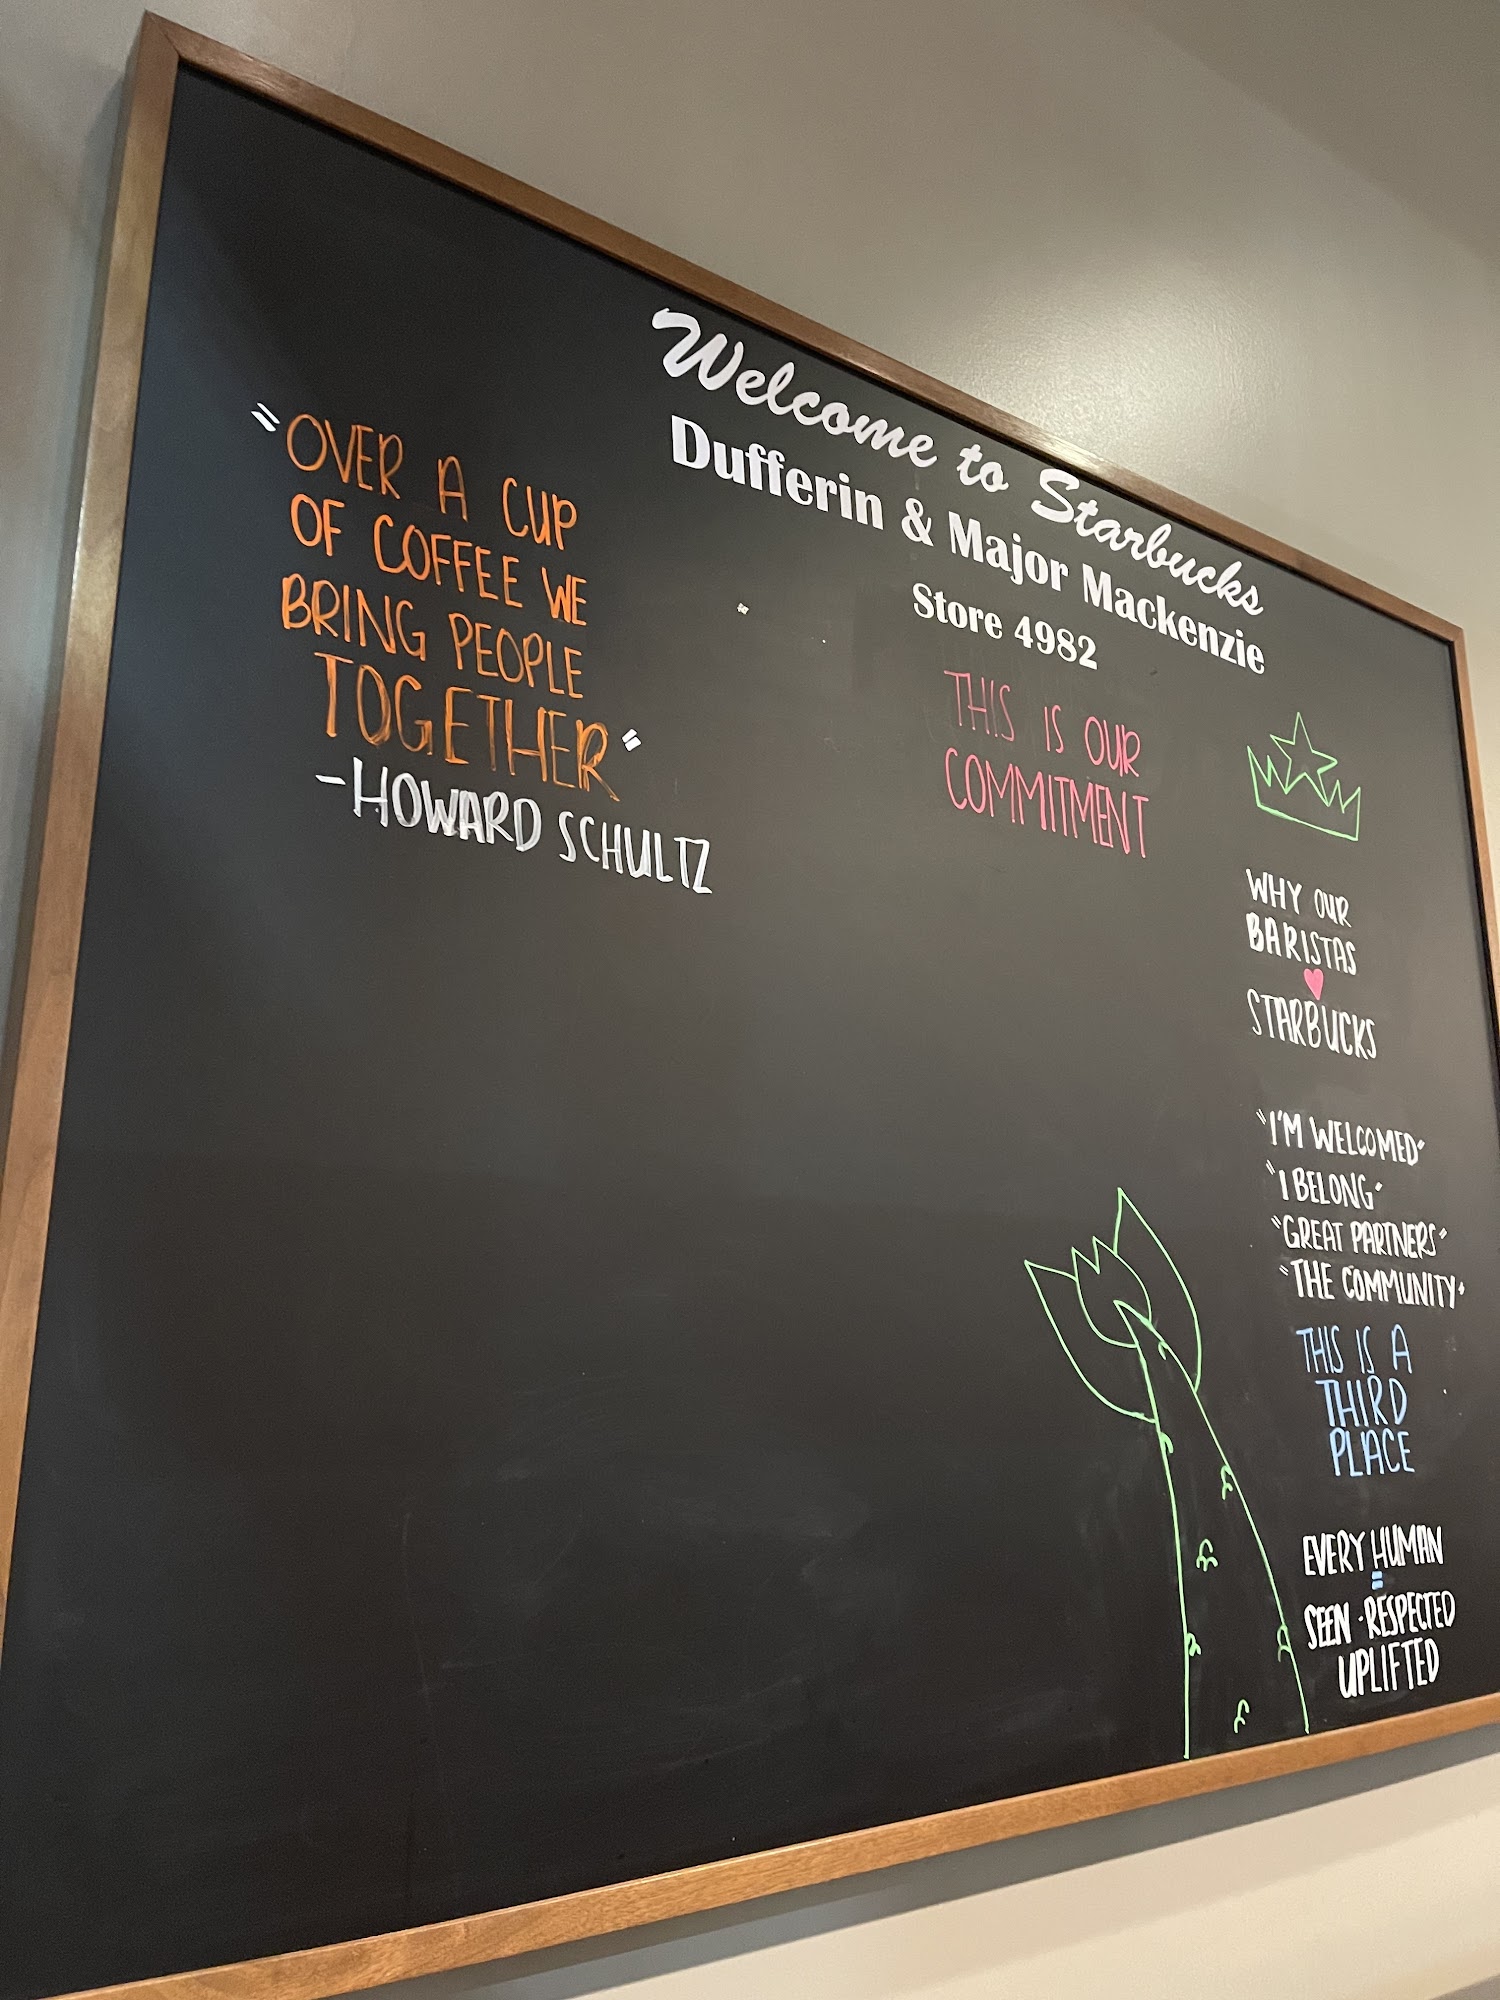 Welcome to Starbucks
Dufferin & Major Mackenzie
Store 4982
"OVER A CUP
OF COFFEE WE
BRING PEOPLE
TOGETHER"
-HOWARD SCHULTZ
THIS IS OUR
COMMITMENT
WHY OUR
BARISTAS
♥
STARBUCKS
"I'M WELCOMED"
"I BELONG"
"GREAT PARTNERS"
"THE COMMUNITY"
THIS IS A
THIRD
PLACE
EVERY HUMAN
=
SEEN · RESPECTED
UPLIFTED